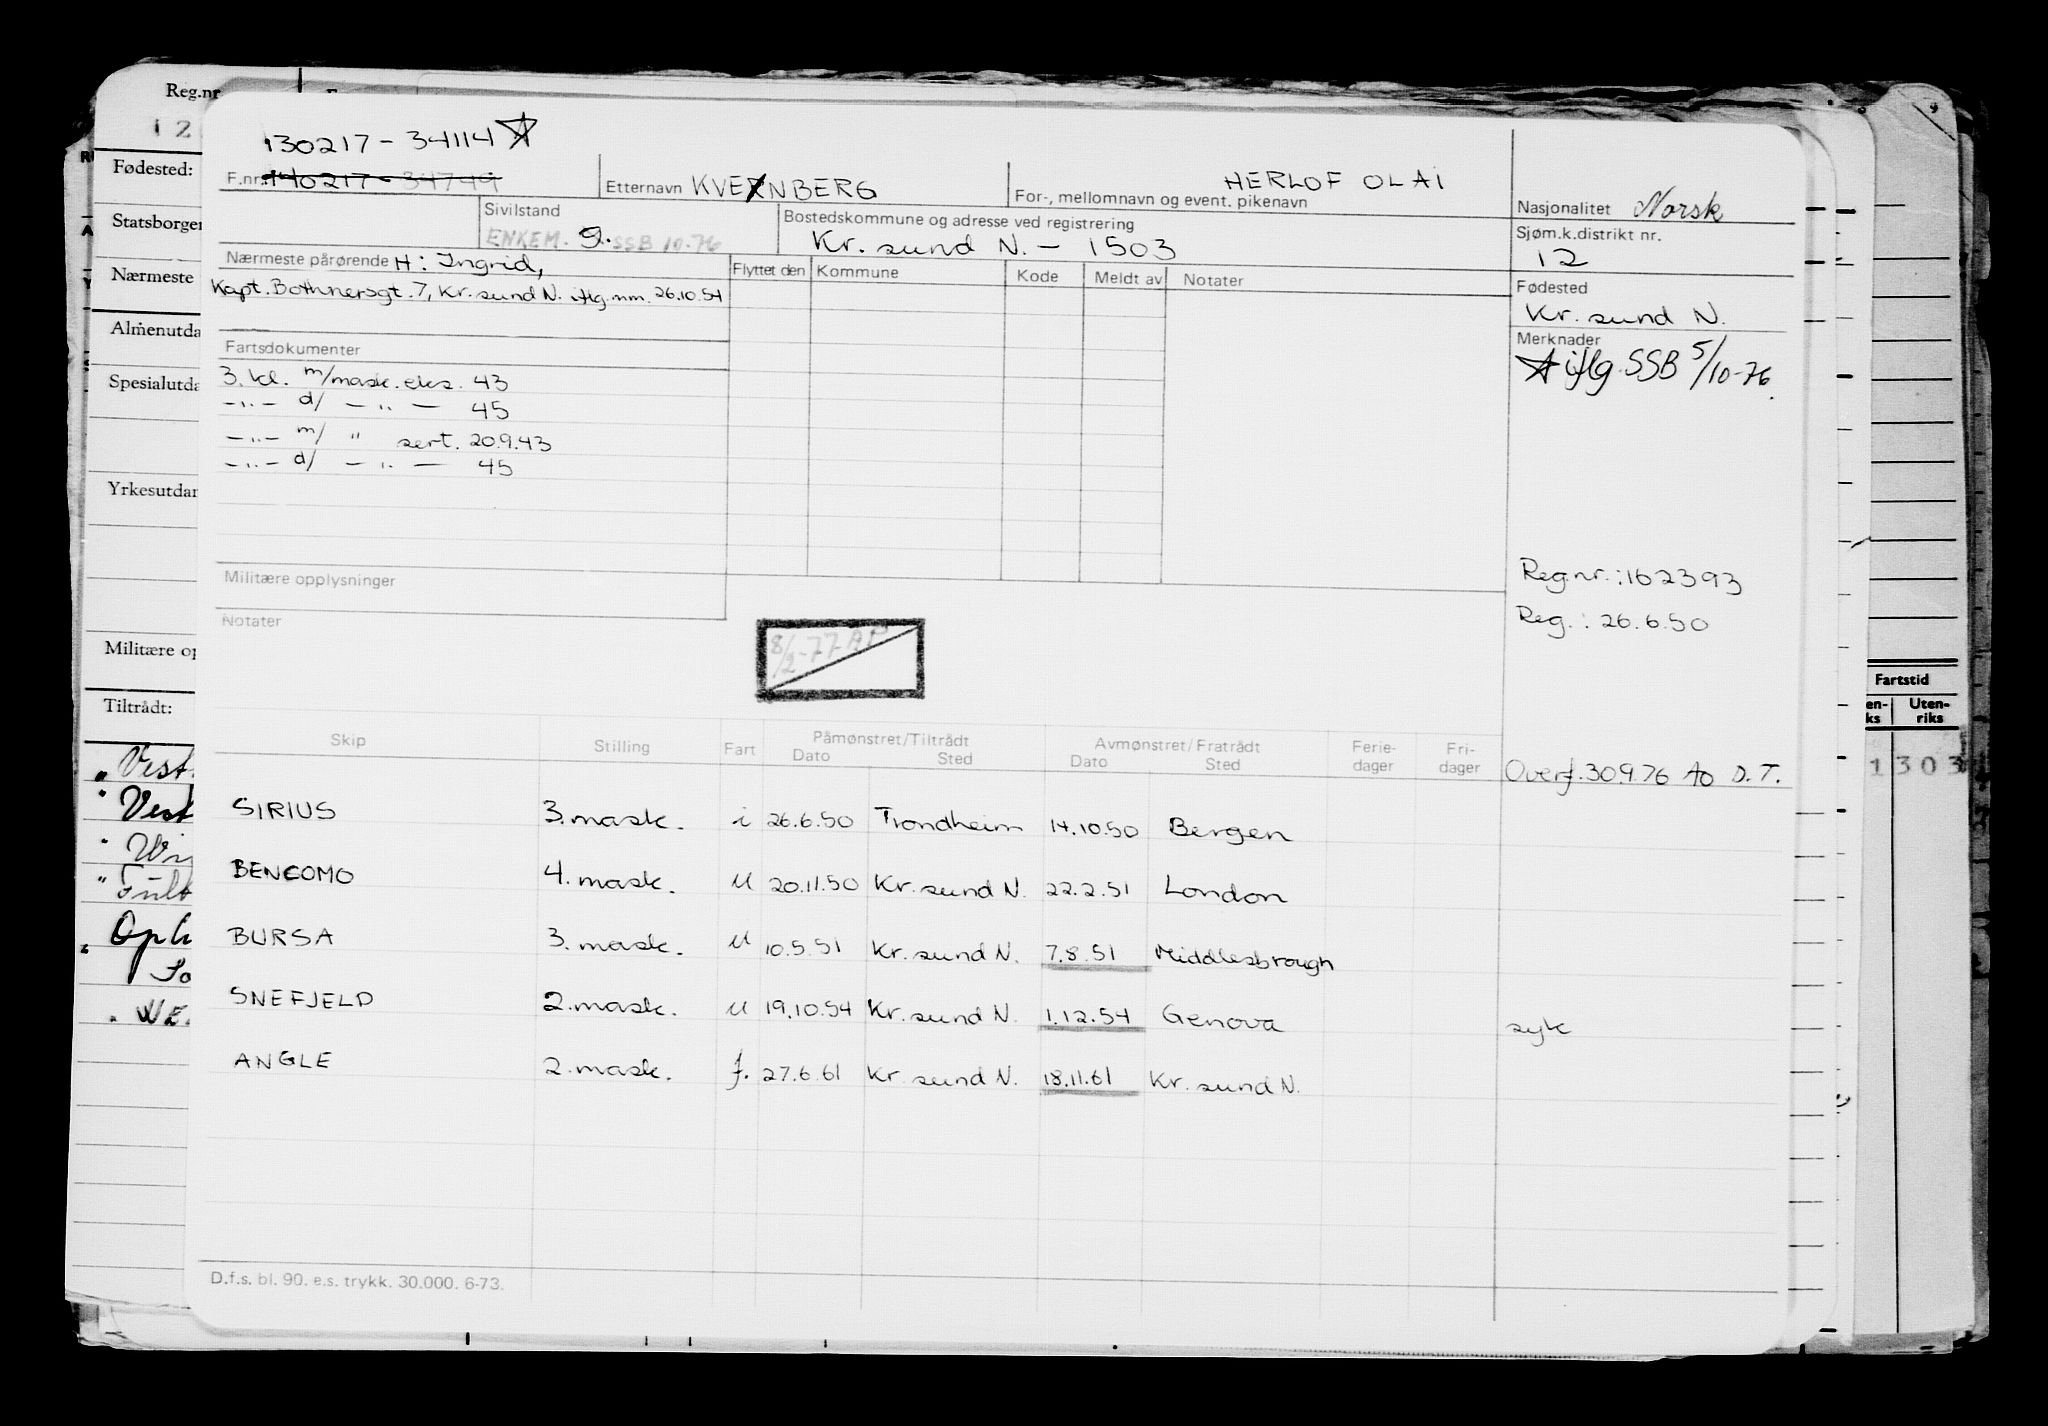 Reg.nr
12
Fødested:
Statsborger
Nærmeste
Almenutda
Spesialutda
Yrkesutdan
Militære op
Tiltrådt:
„Vest
" Vest
" Wi
" Tilt
„ Oph
So
" WE
130217 - 34114 ☆
F.nr. 140217 - 34749
Etternavn KVERNBERG
For-, mellomnavn og event. pikenavn HERLOF OLAI
Nasjonalitet Norsk
Sivilstand
ENKEM. g. SSB 10-76
Bostedskommune og adresse ved registrering
Kr. sund N. - 1503
Sjøm.k.distrikt nr.
12
Nærmeste pårørende H: Ingrid,
Kapt. Bothnersgt. 7, Kr. sund N. iflg. mm. 26.10.54
Flyttet den Kommune Kode Meldt av Notater
Fødested
Kr. sund N.
Merknader
☆ iflg. SSB 5/10-76.
Fartsdokumenter
3. kl. m/mask. eks. 43
-"- d/ - " - 45
-"- m/ " sert. 20.9.43
-"- d/ - " - 45
Militære opplysninger
Reg.nr.: 162393
Reg.: 26.6.50
Notater
8/2-77 AP
Skip Stilling Fart Påmønstret/Tiltrådt Dato Sted Avmønstret/Fratrådt Dato Sted Ferie-dager Fri-dager
Overf. 30.9.76 Ao D.T.
SIRIUS 3. mask. i 26.6.50 Trondheim 14.10.50 Bergen
BENCOMO 4. mask. u 20.11.50 Kr. sund N. 22.2.51 London
BURSA 3. mask. u 10.5.51 Kr. sund N. 7.8.51 Middlesbrough
SNEFJELD 2. mask. u 19.10.54 Kr. sund N. 1.12.54 Genova syk
ANGLE 2. mask. f. 27.6.61 Kr. sund N. 18.11.61 Kr. sund N.
D.f.s. bl. 90. e.s. trykk. 30.000. 6-73.
Fartstid
en-ks Uten-riks
1303